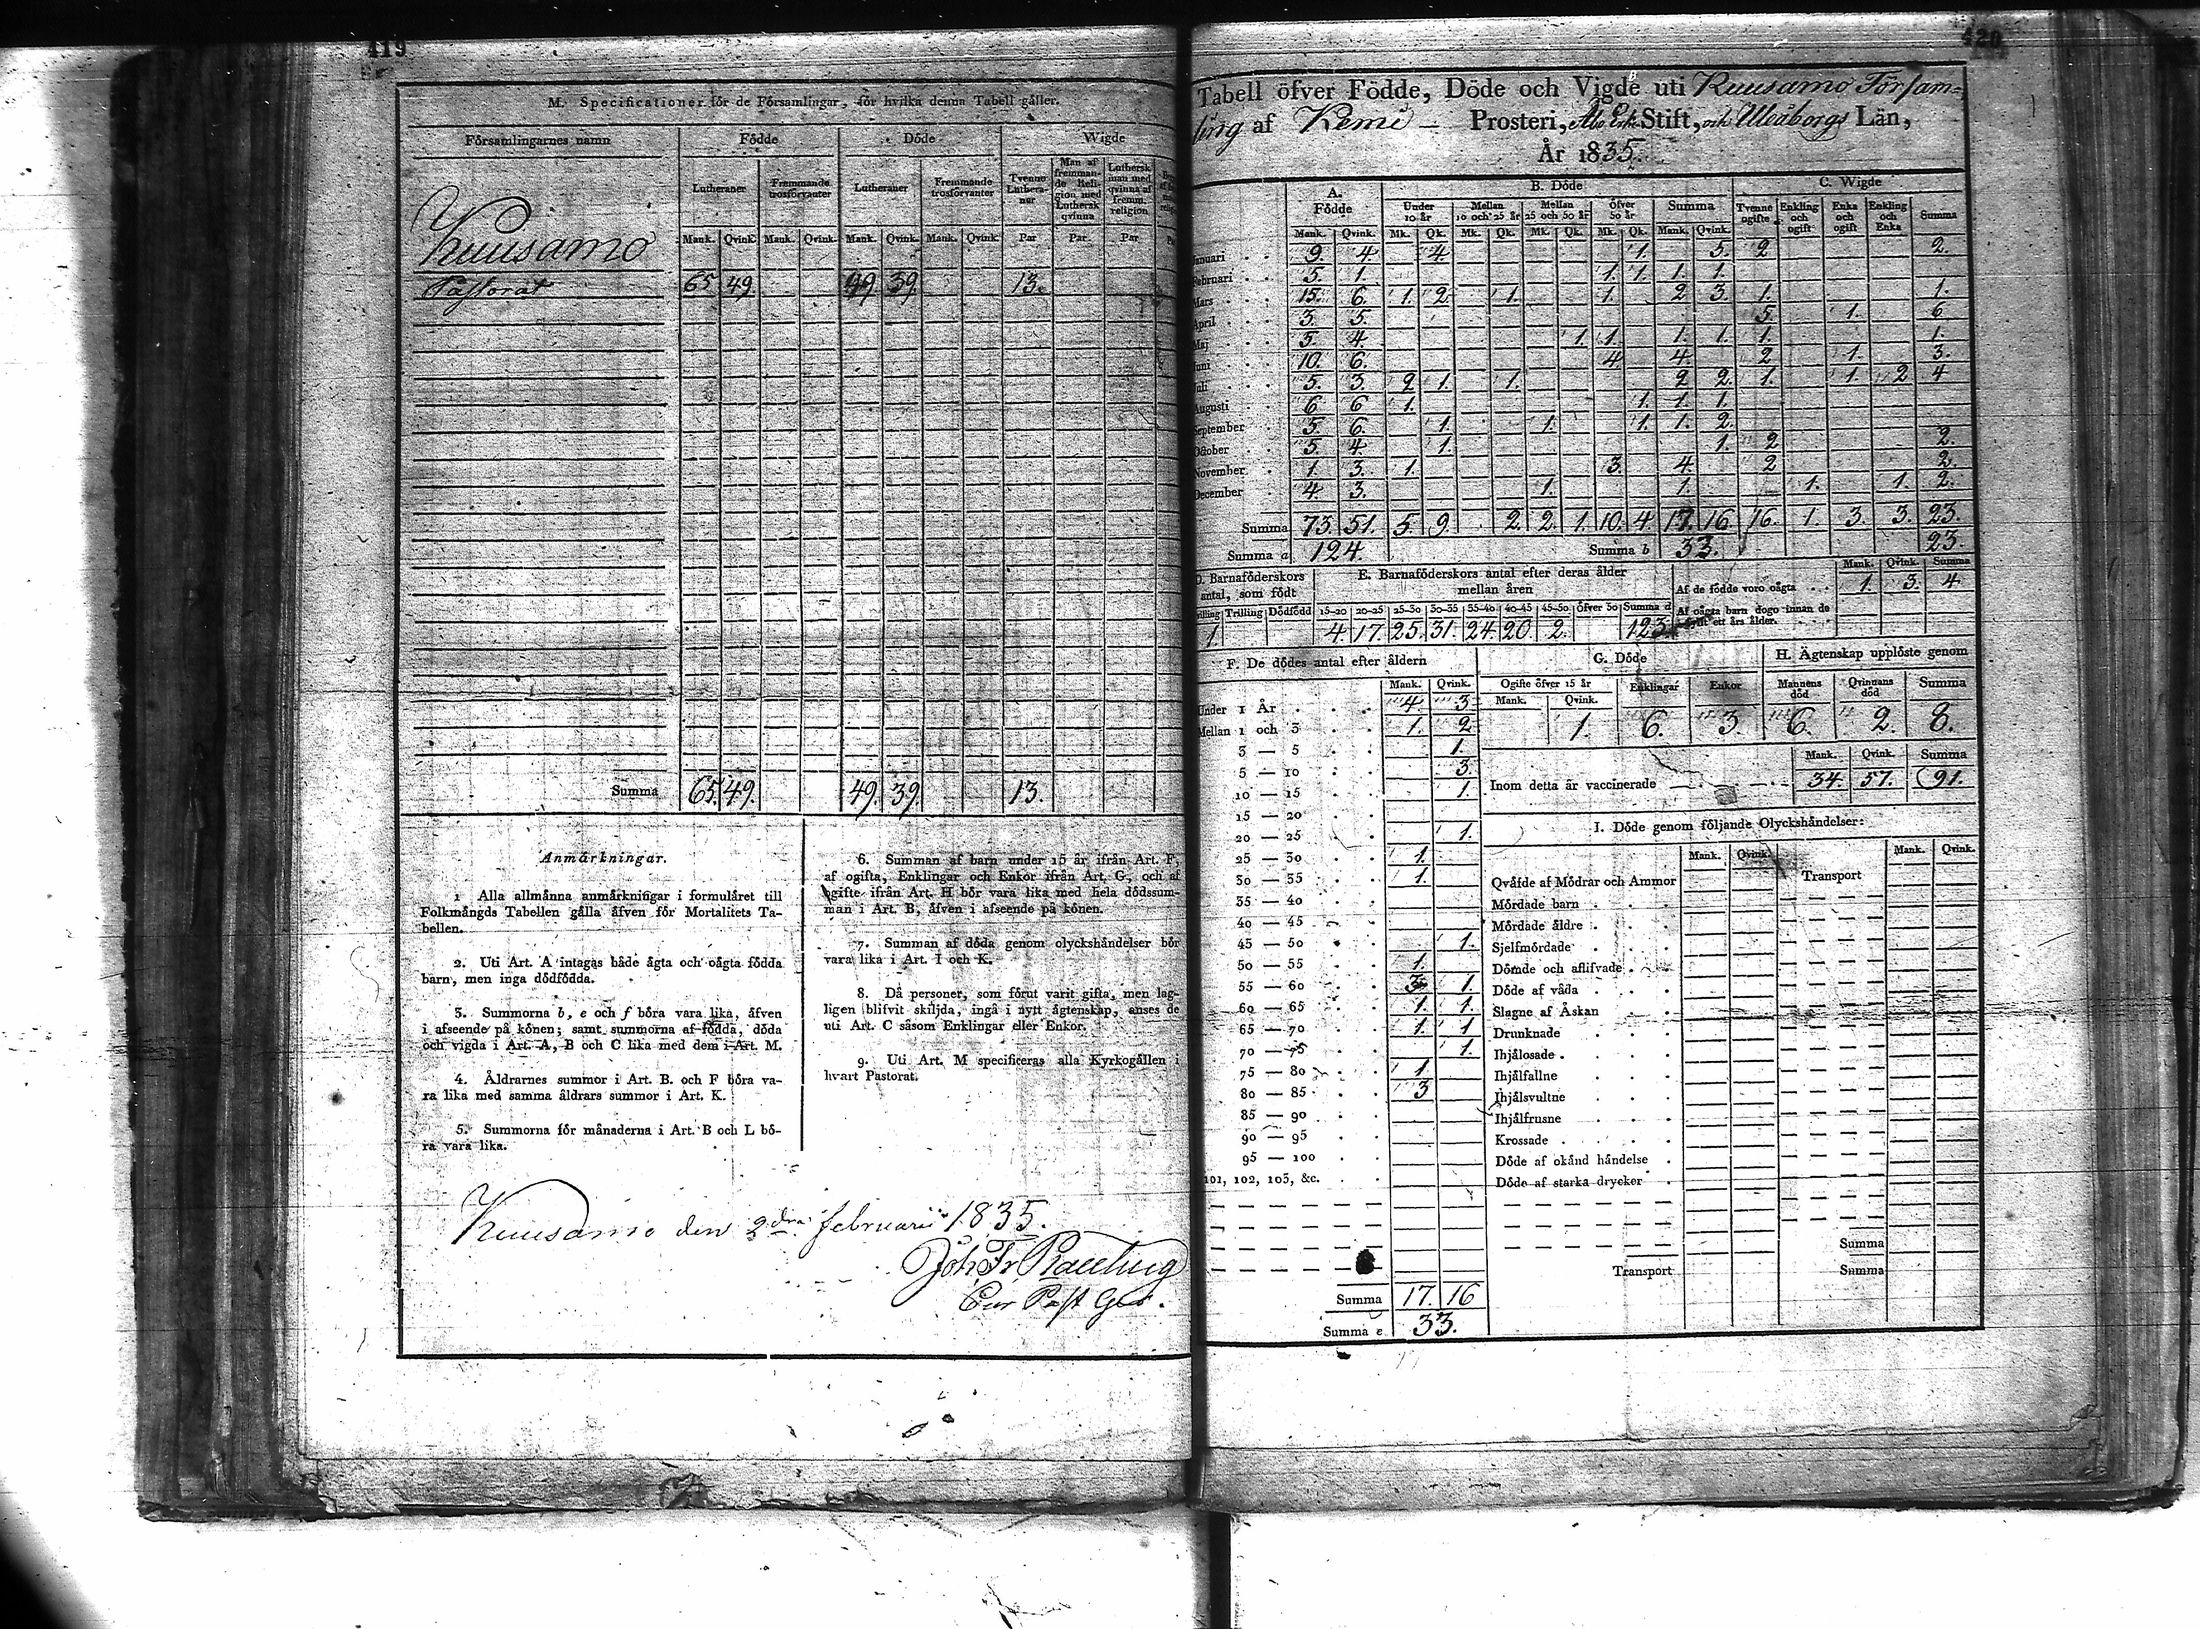 419
M. Specificationer för de Församlingar, för hvilka denna Tabell gäller.
Församlingarnes namn Födde Döde Wigde
Lutheraner Fremmande trosförvanter Lutheraner Fremmande trosförvanter Tvenne Lutheraner Man af fremmande Religion med Luthersk qvinna Luthersk man med qvinna af fremm. religion
Mank. Qvink. Mank. Qvink. Mank. Qvink. Mank. Qvink. Par Par Par
Kuusamo
Pastorat 65 49 49 39 13.
Summa 65. 49. 49. 39. 13.
Anmärkningar.
1 Alla allmänna anmärkningar i formuläret till
Folkmängds Tabellen gälla äfven för Mortalitets Ta-
bellen.
2. Uti Art. A intagas både ägta och oägta födda
barn, men inga dödfödda.
3. Summorna b, e och f böra vara lika, äfven
i afseende på könen; samt summorna af födda, döda
och vigda i Art. A, B och C lika med dem i Art. M.
4. Åldrarnes summor i Art. B. och F böra va-
ra lika med samma åldrars summor i Art. K.
5. Summorna för månaderna i Art. B och L bö-
ra vara lika.
6. Summan af barn under 15 år ifrån Art. F,
af ogifta, Enklingar och Enkor ifrån Art. G, och af
gifte ifrån Art. H bör vara lika med hela dödssum-
man i Art. B, äfven i afseende på könen.
7. Summan af döda genom olyckshändelser bör
vara lika i Art. I och K.
8. Då personer, som förut varit gifta, men lag-
ligen blifvit skiljda, ingå i nytt ägtenskap, anses de
uti Art. C såsom Enklingar eller Enkor.
9. Uti Art. M specificeras alla Kyrkogällen i
hvart Pastorat.
Kuusamo den 2dra februarii 1835.
Joh. Fr.
Past
420
Tabell öfver Födde, Döde och Vigde uti Kuusamo Församling
af Kemi Prosteri, Åbo Stift, och Uleåborgs Län,
År 1835.
A. Födde B. Döde C. Wigde
Under 10 år Mellan 10 och 25 år Mellan 25 och 50 år Öfver 50 år Summa Tvenne ogifte Enkling och ogift Enka och ogift Enkling och Enka Summa
Mank. Qvink. Mk. Qk. Mk. Qk. Mk. Qk. Mk. Qk. Mank. Qvink.
Januari 9. 4. 4. 1. 5. 2 2.
Februari 5. 1. 1. 1. 1. 1.
Mars 15. 6. 1. 2. 1. 1. 2 3. 1. 1.
April 3. 5. 5. 1. 6.
Maj 5. 4 1. 1. 1. 1. 1. 1.
Juni 10. 6. 4. 4. 2 1. 3.
Juli 5. 3. 2 1. 1. 2 2. 1. 1. 2 4
Augusti 6 6 1. 1. 1. 1.
September 5. 6. 1. 1. 1. 1. 2.
October 5. 4. 1. 1. 2 2.
November 1. 3. 1. 3. 4. 2 2.
December 4. 3. 1. 1. 1. 1. 2.
Summa 73. 51. 5. 9. 2. 2. 1. 10. 4. 17. 16 16. 1. 3. 3. 23.
Summa a 124. Summa b 33. 23.
D. Barnaföderskors antal, som födt E. Barnaföderskors antal efter deras ålder mellan åren
Mank. Qvink. Summa
Af de födde voro oägta 1. 3. 4
Trilling Dödfödd 15-20 20-25 25-30 30-35 35-40 40-45 45-50 Öfver 50 Summa d
Af oägta barn dogo innan de fyllt ett års ålder.
1. 4. 17. 25. 31. 24. 20. 2. 123.
F. De dödes antal efter åldern
Mank. Qvink.
Under 1 År 4. 3
Mellan 1 och 3 1. 2
3 — 5 1.
5 — 10 3.
10 — 15 1.
15 — 20
20 — 25 1.
25 — 30 1.
30 — 35 1.
35 — 40
40 — 45
45 — 50 1.
50 — 55 1.
55 — 60 3 1.
60 — 65 1. 1.
65 — 70 1. 1
70 — 75 1.
75 — 80 1.
80 — 85 3
85 — 90
90 — 95
95 — 100
101, 102, 103, &c.
Summa 17. 16
Summa e 33.
G. Döde H. Ägtenskap upplöste genom
Ogifte öfver 15 år Enklingar Enkor Mannens död Qvinnans död Summa
Mank. Qvink.
1. 6. 3. 6. 2. 8.
Mank. Qvink. Summa
Inom detta år vaccinerade 34. 57. 91.
I. Döde genom följande Olyckshändelser:
Mank. Qvink. Mank. Qvink.
Qväfde af Mödrar och Ammor Transport
Mördade barn
Mördade äldre
Sjelfmördade
Dömde och aflifvade
Döde af våda
Slagne af Åskan
Drunknade
Ihjälosade
Ihjälfallne
Ihjälsvultne
Ihjälfrusne
Krossade
Döde af okänd händelse
Döde af starka drycker
Summa
Transport Summa